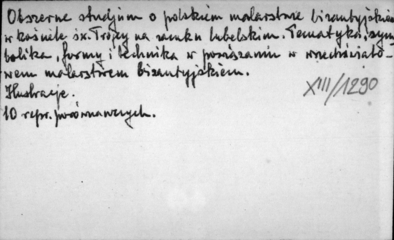 Obszerne studjum o polskiem malarstwie bizantyjskiem
w kościele św. Trójcy na zamku lubelskim. Tematyka, sym
bolika, formy i technika w porównaniu w wszechświato-
wem malarstwem bizantyjskiem.
Ilustracje.
10 repr. porównawczych.
XIII/1290